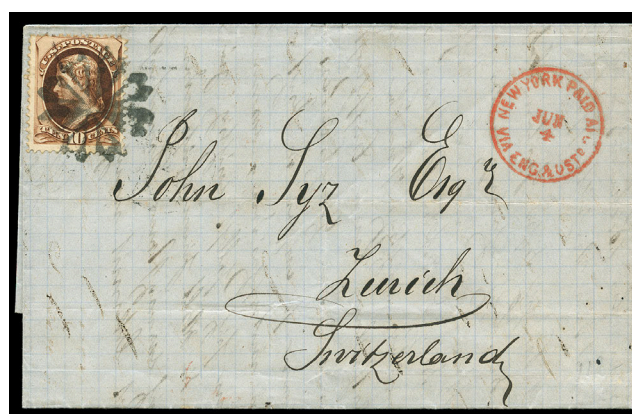 U.S. POSTAGE
10
NEW YORK PAID ALL
JUN
4
VIA ENG. & OST.
John Syz Esqr
Zurich
Switzerland